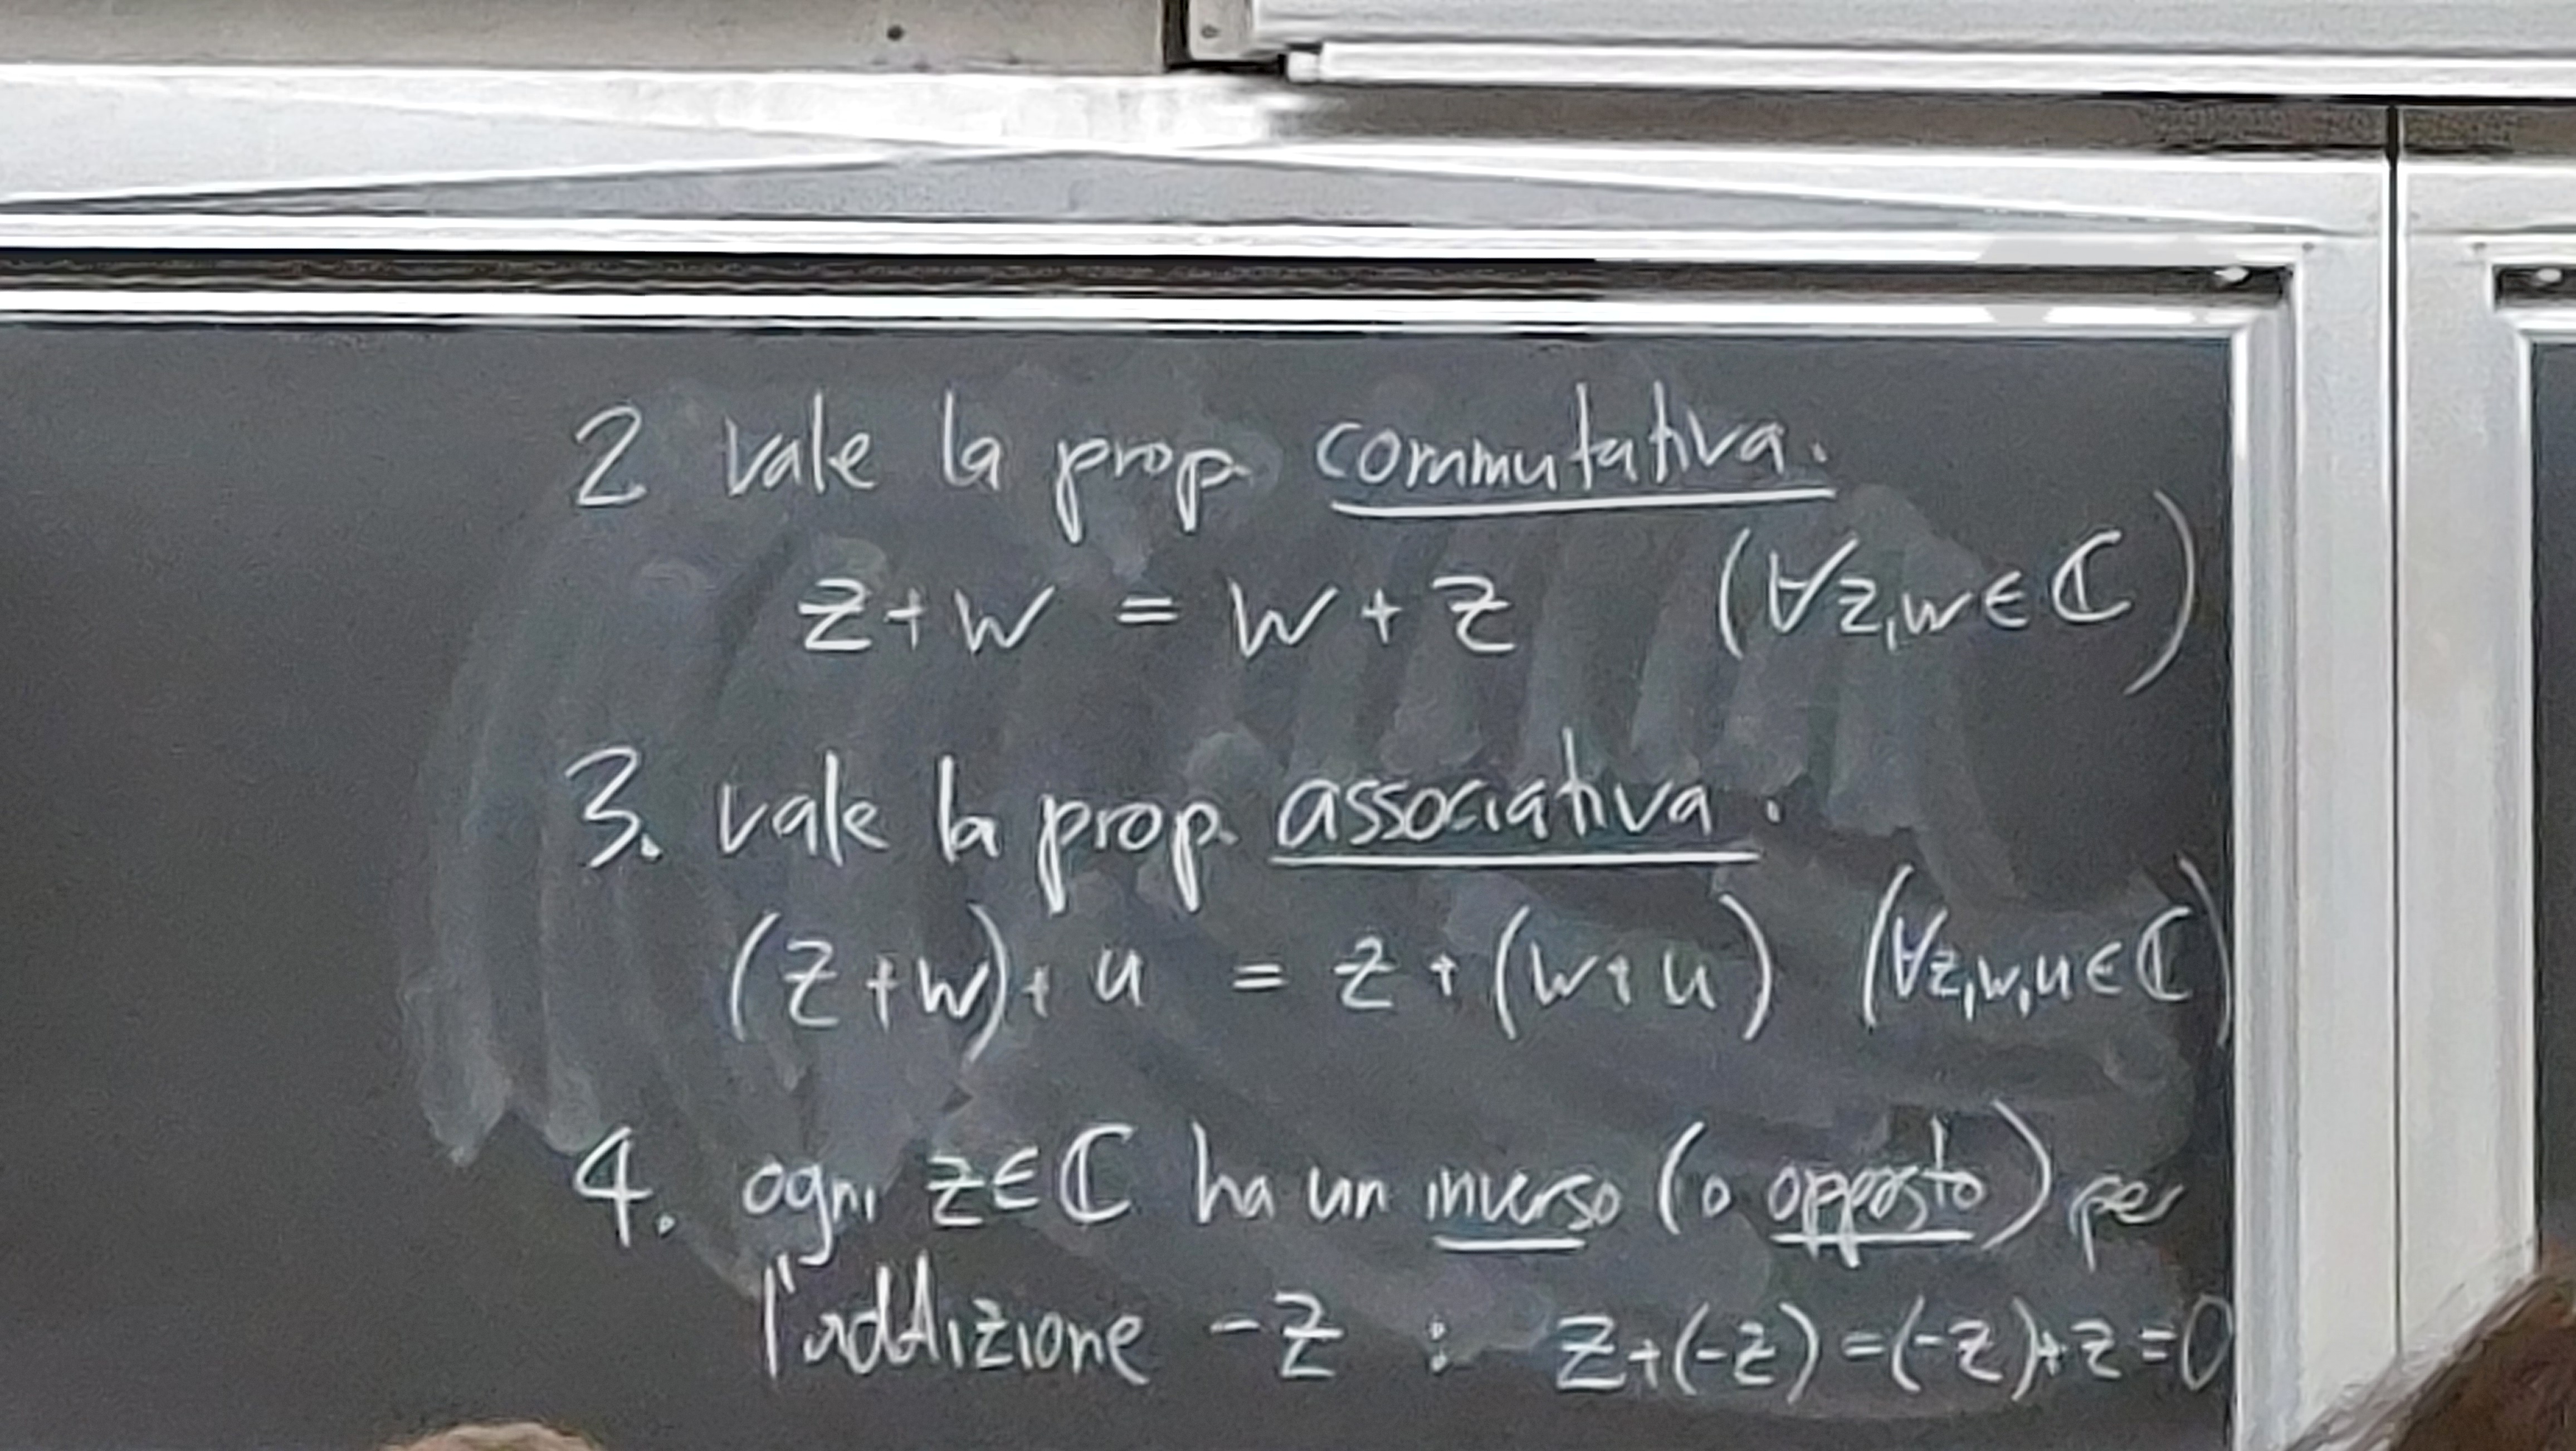 2 vale la prop. commutativa.
z+w = w+z (∀z,w∈ℂ)
3. vale la prop. associativa.
(z+w)+u = z+(w+u) (∀z,w,u∈ℂ)
4. ogni z∈ℂ ha un inverso (o opposto) per
l'addizione -z : z+(-z)=(-z)+z=0